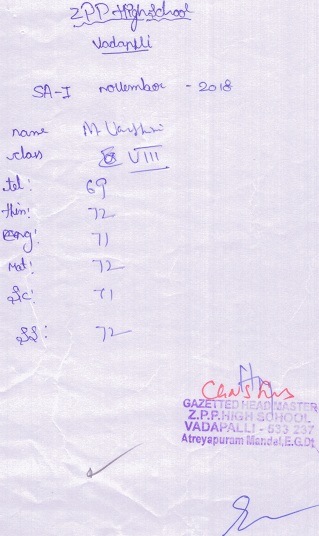 ZPP High School
Vadapalli
SA-I november - 2018
name M Varshini
class VIII
tel: 69
Hin: 72
Eng: 71
Mat: 72
Sc: 71
SS: 72
GAZETTED HEAD MASTER
Z.P.P. HIGH SCHOOL
VADAPALLI - 533 237
Atreyapuram Mandal, E.G.Dt